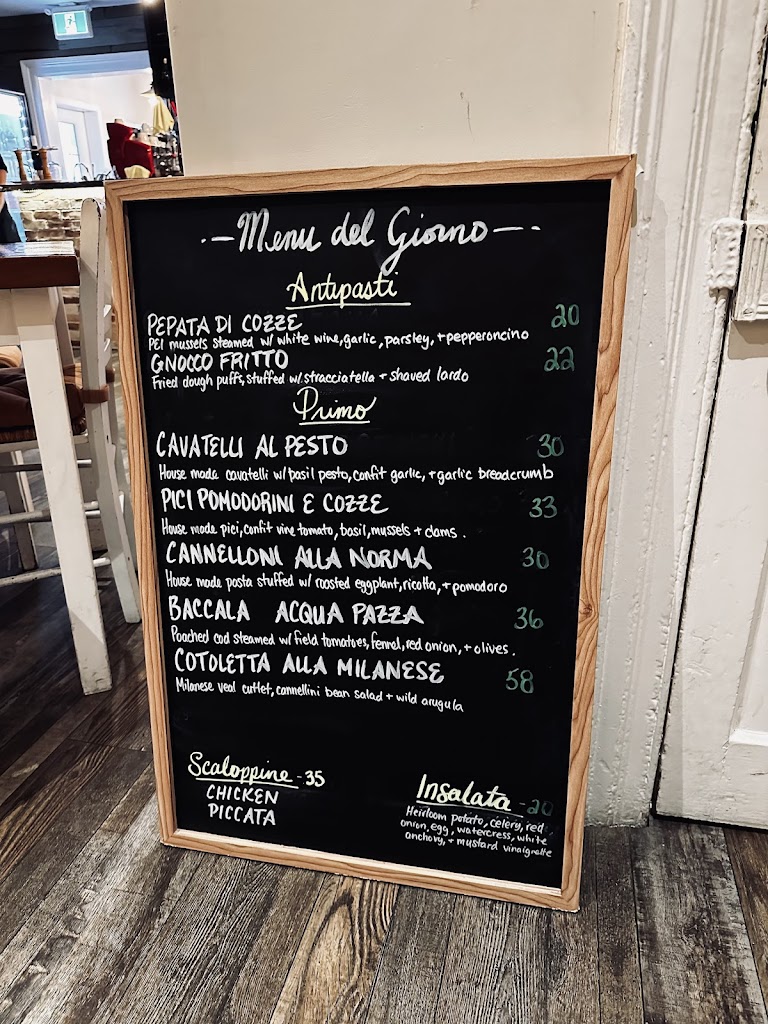 Menu del Giorno
Antipasti
PEPATA DI COZZE 20
PEI mussels steamed w/ white wine, garlic, parsley, + pepperoncino
GNOCCO FRITTO 22
Fried dough puffs, stuffed w/ stracciatella + shaved lardo
Primo
CAVATELLI AL PESTO 30
House made cavatelli w/ basil pesto, confit garlic, + garlic breadcrumb
PICI POMODORINI E COZZE 33
House made pici, confit vine tomato, basil, mussels + clams.
CANNELLONI ALLA NORMA 30
House made pasta stuffed w/ roasted eggplant, ricotta, + pomodoro
BACCALA ACQUA PAZZA 36
Poached cod steamed w/ field tomatoes, fennel, red onion, + olives.
COTOLETTA ALLA MILANESE 58
Milanese veal cutlet, cannellini bean salad + wild arugula
Scaloppine - 35
CHICKEN
PICCATA
Insalata - 20
Heirloom potato, celery, red
onion, egg, watercress, white
anchovy, + mustard vinaigrette